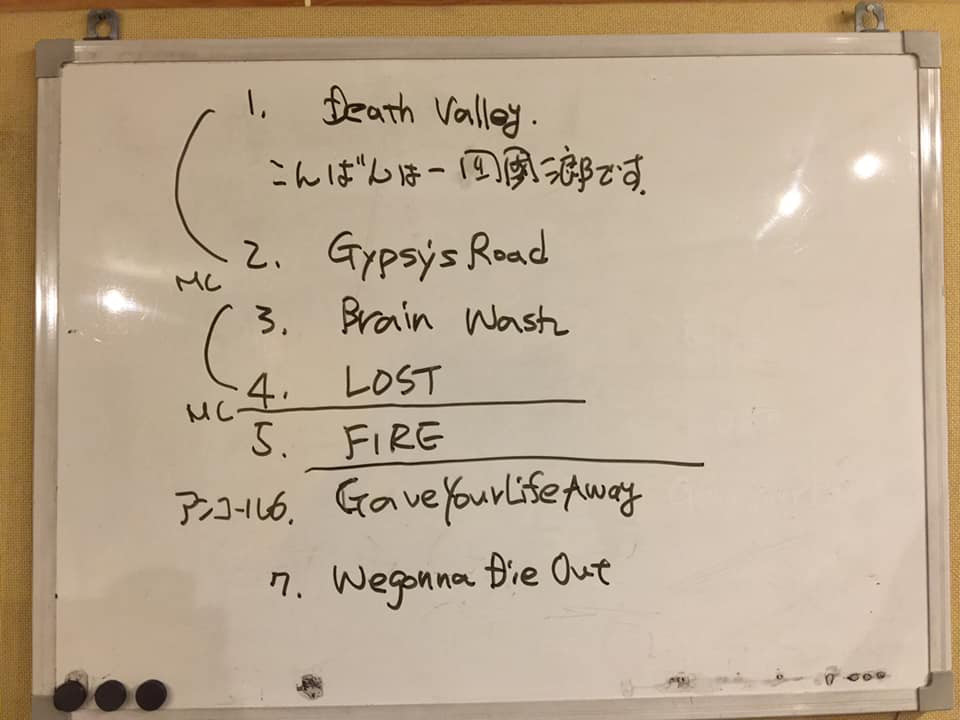 1. Death Valley.
こんばんはー 二郎です.
2. Gypsy's Road
MC
3. Brain Wash
4. LOST
MC
5. FIRE
アンコール6. Gave Your Life Away
7. We gonna Die Out